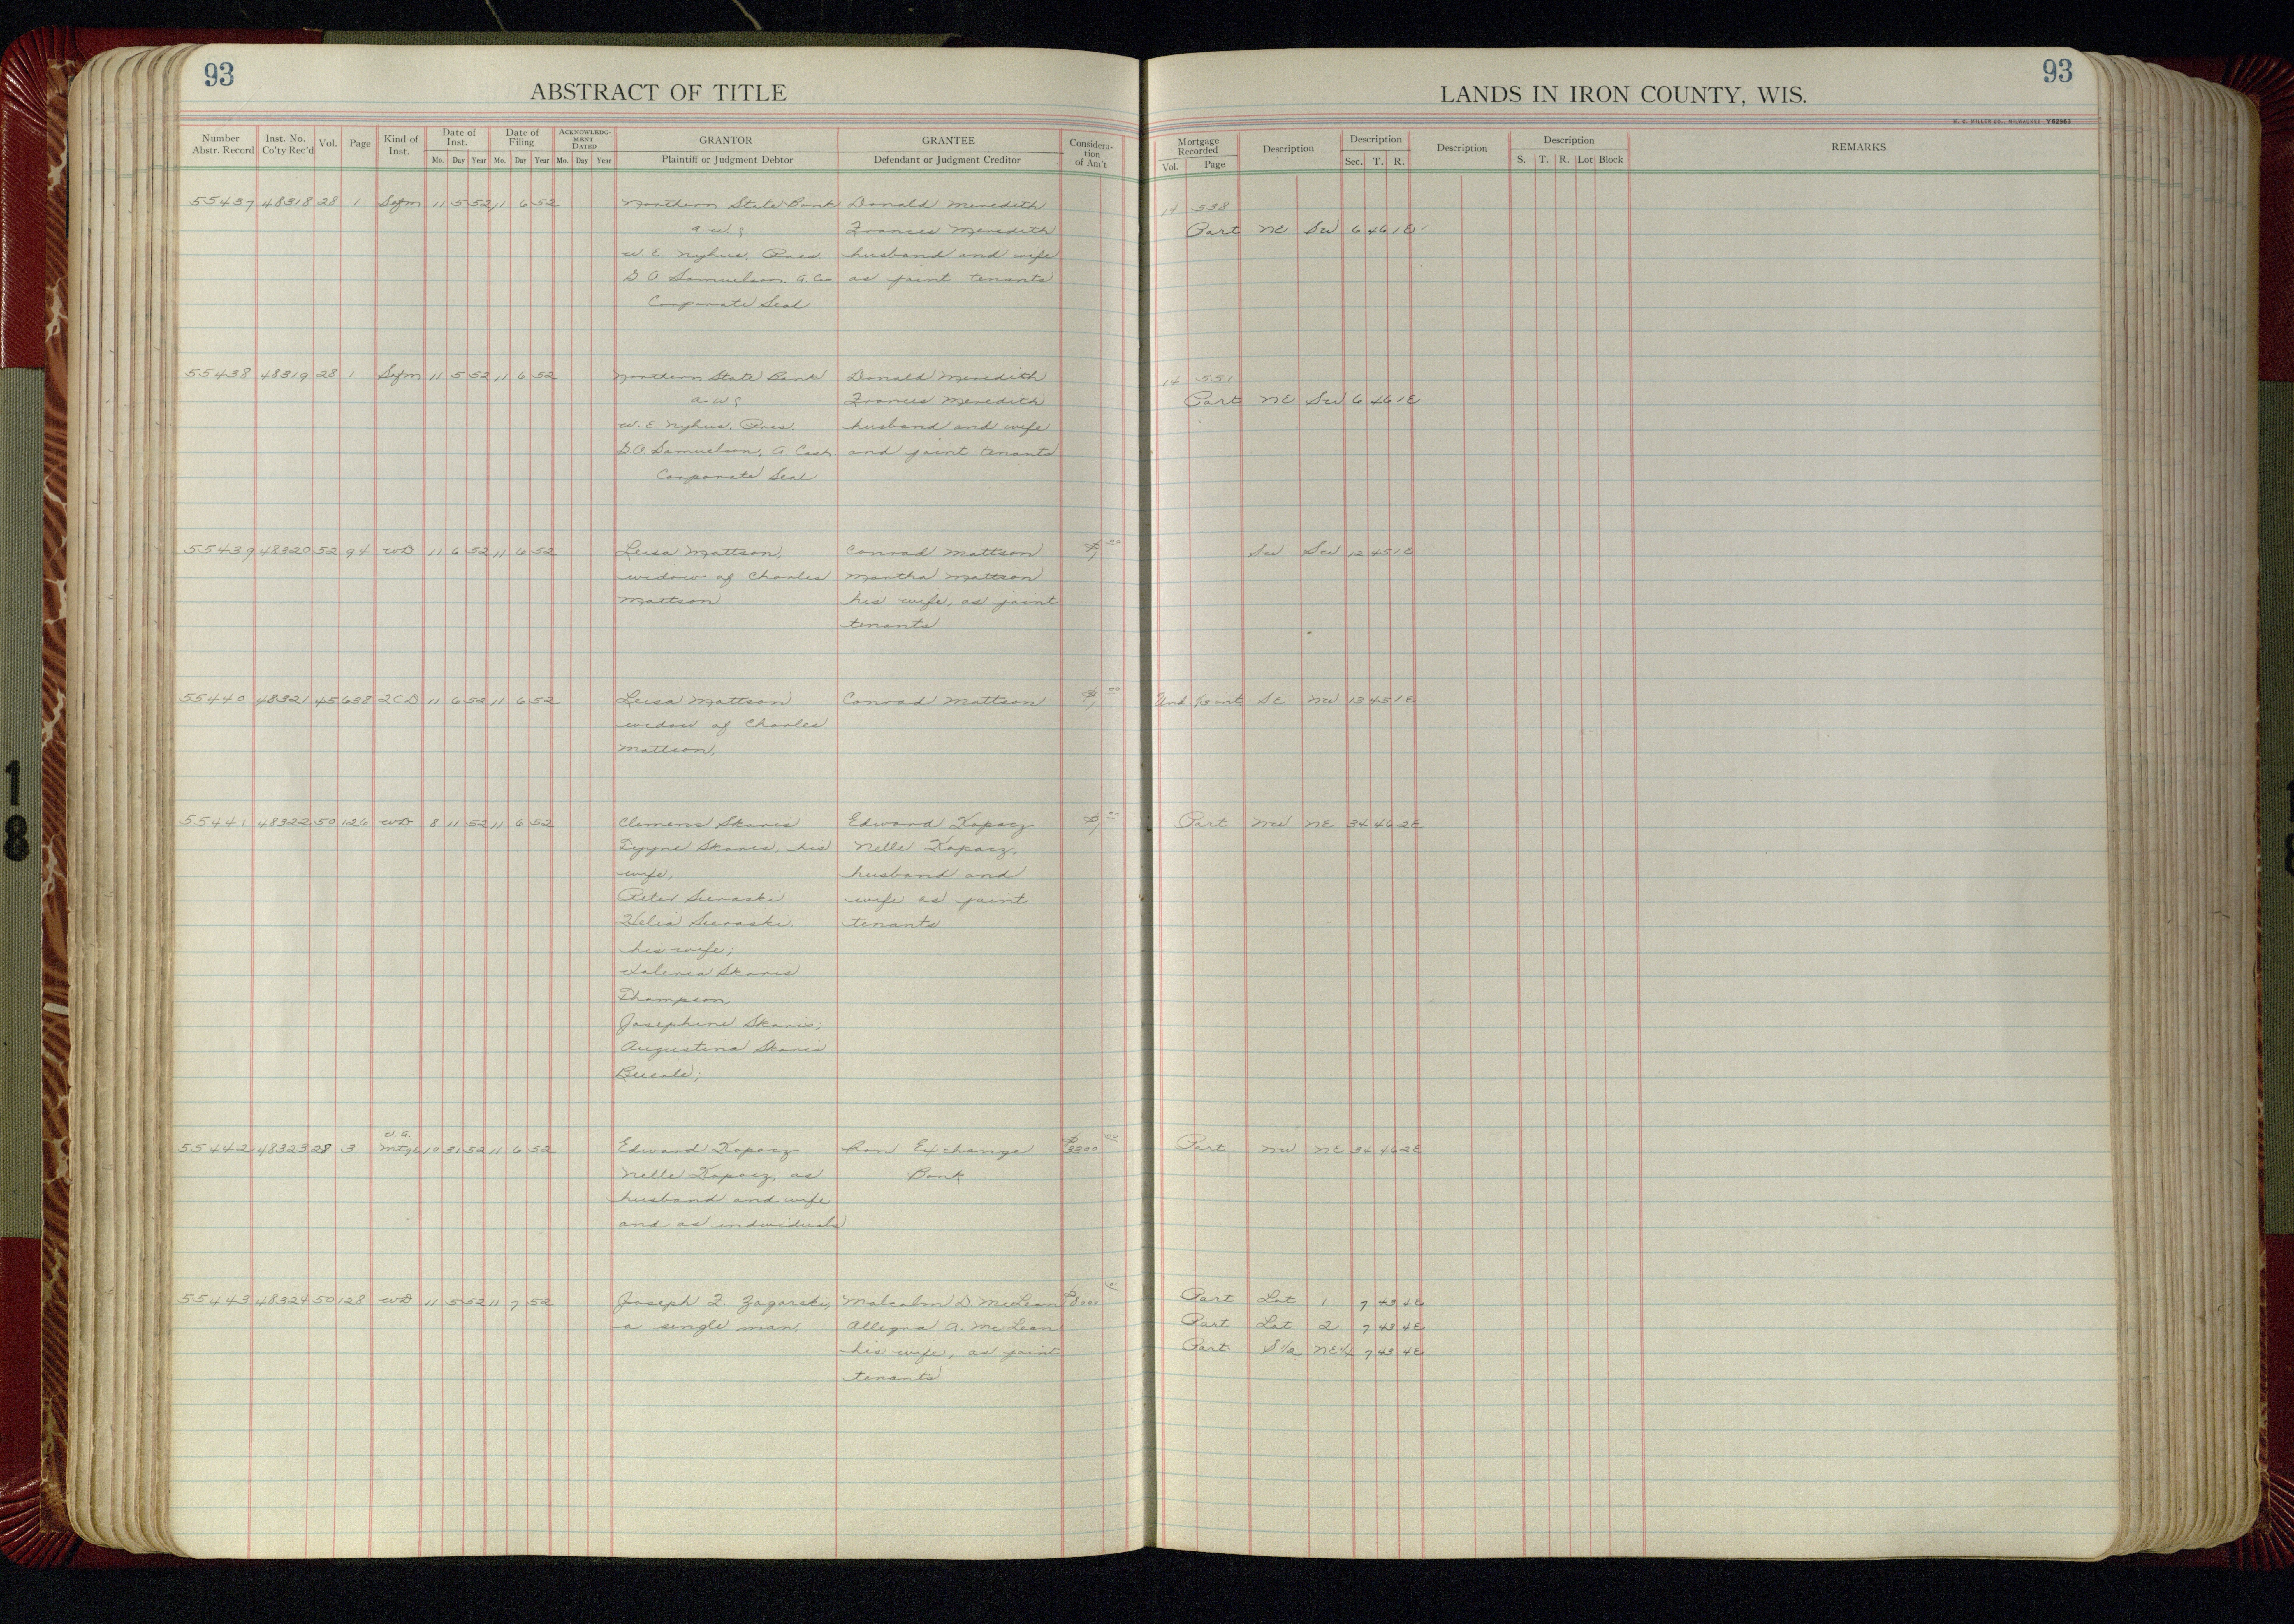 93
ABSTRACT OF TITLE
Number Abstr. Record Inst. No. Co'ty Rec'd Vol. Page Kind of Inst. Date of Inst. Mo. Day Year Date of Filing Mo. Day Year ACKNOWLEDGMENT DATED Mo. Day Year GRANTOR Plaintiff or Judgment Debtor GRANTEE Defendant or Judgment Creditor Consideration of Am't
93
LANDS IN IRON COUNTY, WIS.
Y62963
Mortgage Recorded Vol. Page Description Description Sec. T. R. Description Description S. T. R. Lot Block REMARKS
55437 48318 28 1 Safm 11 5 52 11 6 52 Northern State Bank Donald Meredith 14 538
a w s Frances Meredith Part NE SW 6 46 1E
W. E. Nyhus, Pres. husband and wife
G O Samuelson, A Cas. as joint tenants
Corporate Seal
55438 48319 28 1 Safm 11 5 52 11 6 52 Northern State Bank Donald Meredith 14 551
a w s Frances Meredith Part NE SW 6 46 1E
W. E. Nyhus, Pres. husband and wife
G.O. Samuelson, A Cash and joint tenants
Corporate Seal
55439 48320 52 94 WD 11 6 52 11 6 52 Luisa Mattson, Conrad Mattson $1 00 SW SW 12 45 1E
widow of Charles Martha Mattson
Mattson his wife, as joint
tenants
55440 48321 45 638 2CD 11 6 52 11 6 52 Luisa Mattson Conrad Mattson $1 00 Und ½ int SE NW 13 45 1E
widow of Charles
Mattson,
55441 48322 50 126 WD 8 11 52 11 6 52 Clemens Skaris Edward Kopacz $1 00 Part NW NE 34 46 2E
Tyyne Skaris, his Nelle Kopacz,
wife; husband and
Peter Sieraski wife as joint
Helia Sieraski, tenants
his wife;
Valeria Skaris
Thompson;
Josephine Skaris;
Augustina Skaris
55442 48323 28 3 Mtge 10 31 52 11 6 52 Edward Kopacz Iron Exchange $3300 00 Part NW NE 34 46 2E
Nelle Kopacz, as Bank
husband and wife
and as individuals
55443 48324 50 128 WD 11 5 52 11 7 52 Joseph F. Zagorski, Malcolm D. McLean $8000 00 Part Lot 1 7 43 4E
a single man. Allegra A. McLean Part Lot 2 7 43 4E
his wife, as joint Part S½ NE¼ 7 43 4E
tenants
18